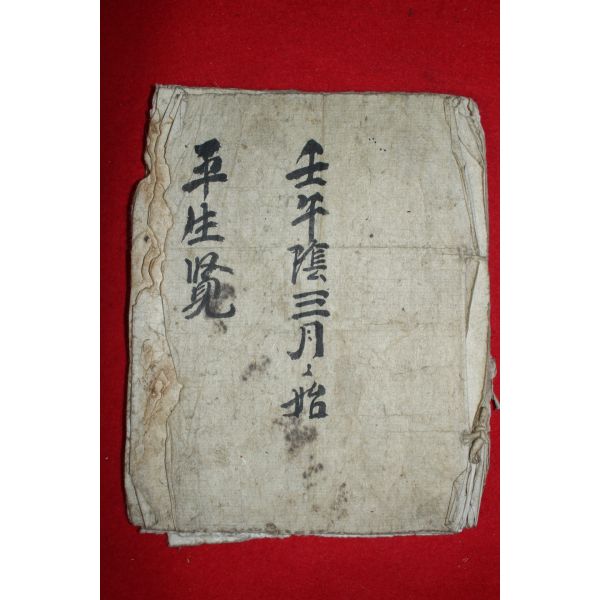 壬午陰三月〻始
平生覧